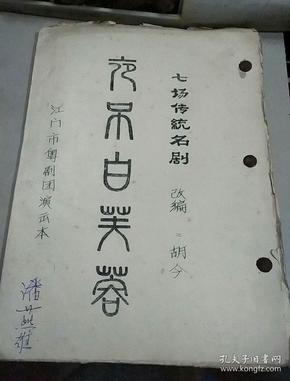 七场传统名剧
改编：胡今
夜吊白芙蓉
江门市粤剧团演出本
潘燕雄
孔夫子旧书网